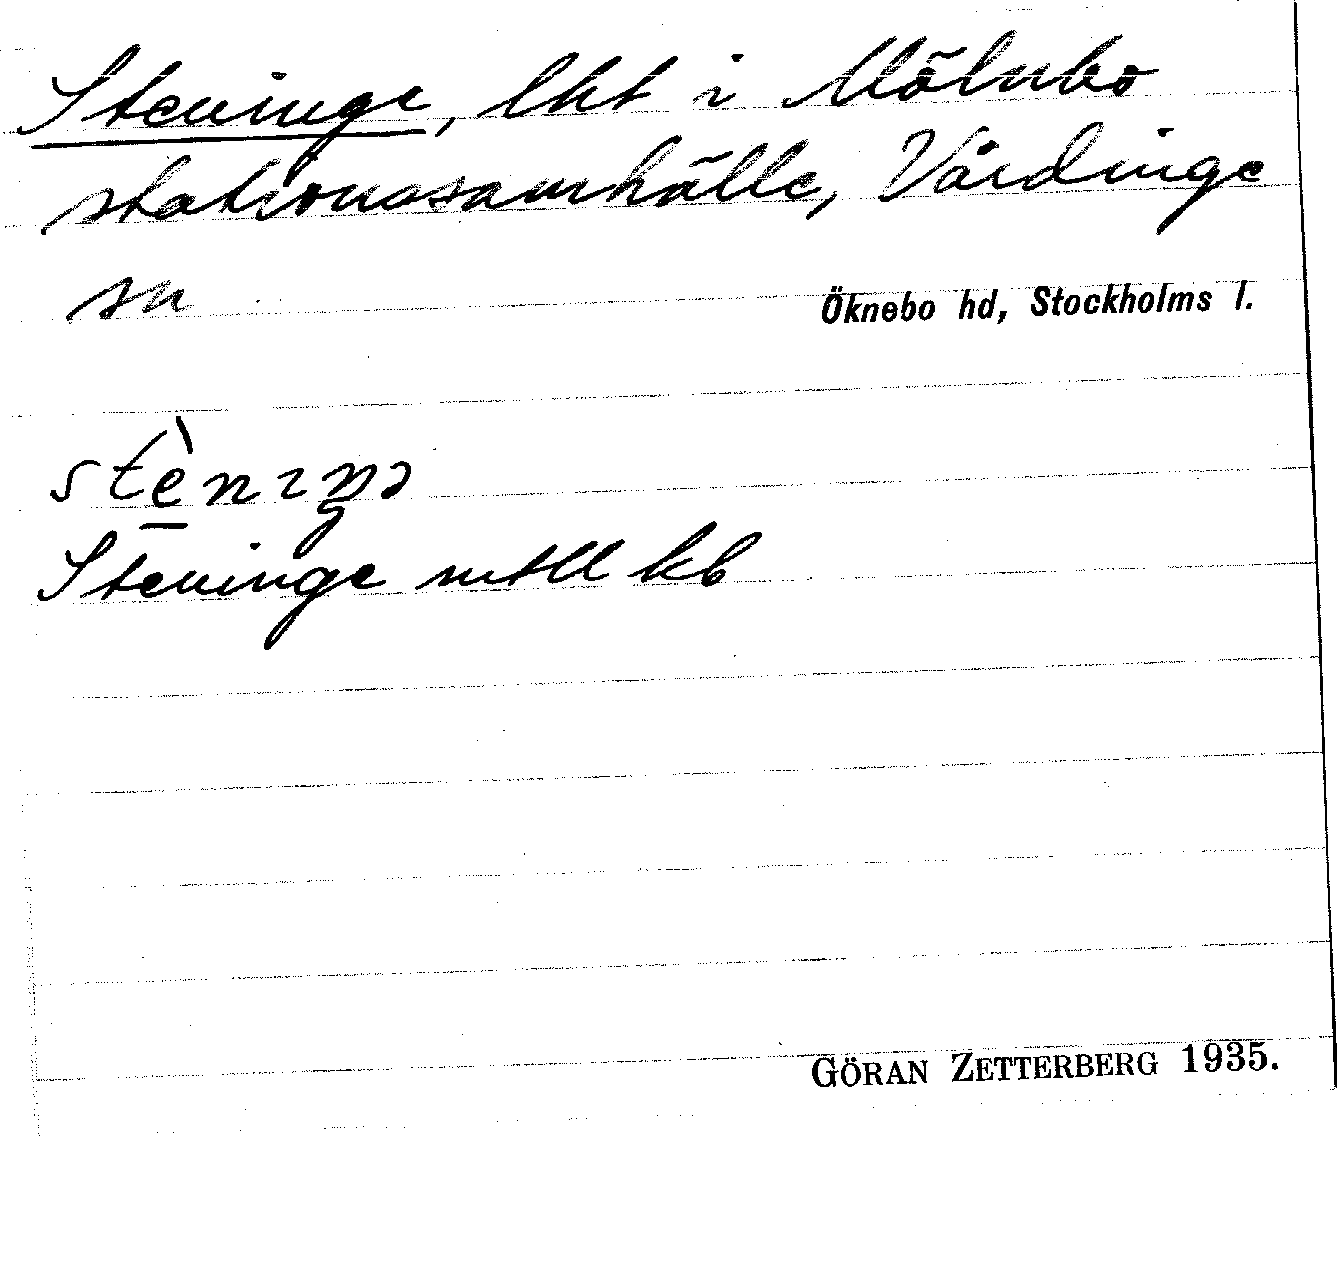 Steninge, lht i Mölnbo
stationssamhälle, Vårdinge
sn
Öknebo hd, Stockholms l.
stè̱nıŋə
Steninge mtll kb
GÖRAN ZETTERBERG 1935.